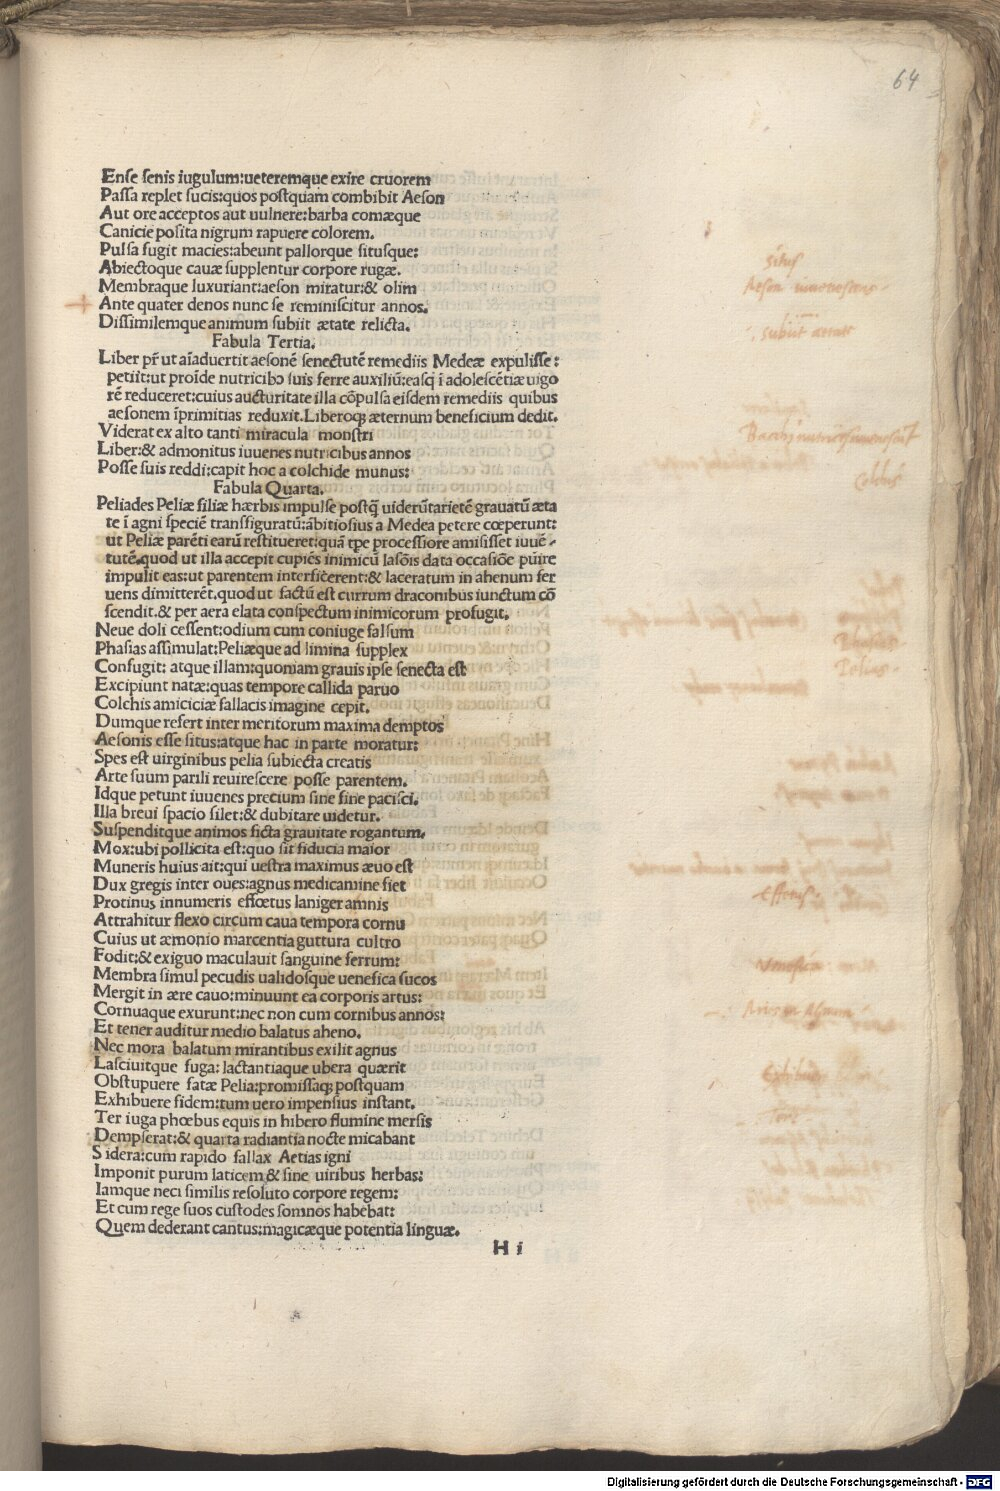 64
Ense senis iugulum:ueteremque exire cruorem
Passa replet sucis:quos postquam combibit Aeson
Aut ore acceptos aut uulnere:barba comæque
Canicie posita nigrum rapuere colorem.
Pulsa fugit macies:abeunt pallorque situsque:
Abiectoque cauæ supplentur corpore rugæ.
Membraque luxuriant:aeson miratur:& olim
Ante quater denos nunc se reminiscitur annos.
Dissimilemque animum subiit ætate relicta.
Fabula Tertia.
Liber pr̃ ut aĩaduertit aesonẽ senectutẽ remediis Medeæ expulisse:
petiit:ut proĩde nutricibɔ suis ferre auxiliũ:easq̃ ĩ adolescẽtiæ uigo
rẽ reduceret:cuius aucturitate illa cõpulsa eisdem remediis quibus
aesonem ĩprimitias reduxit.Liberoqꝫ æternum beneficium dedit.
Viderat ex alto tanti miracula monstri
Liber:& admonitus iuuenes nutricibus annos
Posse suis reddi:capit hoc a colchide munus:
Fabula Quarta.
Peliades Peliæ filiæ hærbis impulse postq̃ uiderũt arietẽ grauatũ æta
te ĩ agni speciẽ transfiguratũ:ãbitiosius a Medea petere cœperunt:
ut Peliæ parẽti earũ restitueret:quã tpe processiore amisisset iuuẽ-
tutẽ.quod ut illa accepit cupiẽs inimicũ Iasõis data occasiõe pũire
impulit eas:ut parentem interficerent:& laceratum in ahenum fer
uens dimitterẽt.quod ut factũ est currum draconibus iunctum cõ
scendit.& per aera elata conspectum inimicorum profugit.
Neue doli cessent:odium cum coniuge falsum
Phasias assimulat:Peliæque ad limina supplex
Confugit: atque illam:quoniam grauis ipse senecta est
Excipiunt natæ:quas tempore callida paruo
Colchis amiciciæ fallacis imagine cepit.
Dumque refert inter meritorum maxima demptos
Aesonis esse situs:atque hac in parte moratur:
Spes est uirginibus pelia subiecta creatis
Arte suum parili reuirescere posse parentem.
Idque petunt iuuenes precium sine fine pacisci.
Illa breui spacio silet:& dubitare uidetur.
Suspenditque animos ficta grauitate rogantum.
Mox:ubi pollicita est:quo sit fiducia maior
Muneris huius ait:qui uestra maximus æuo est
Dux gregis inter oues:agnus medicamine fiet
Protinus innumeris effœtus laniger amnis
Attrahitur flexo circum caua tempora cornu
Cuius ut æmonio marcentia guttura cultro
Fodit:& exiguo maculauit sanguine ferrum:
Membra simul pecudis ualidosque uenefica sucos
Mergit in ære cauo:minuunt ea corporis artus:
Cornuaque exurunt:nec non cum cornibus annos:
Et tener auditur medio balatus aheno.
Nec mora balatum mirantibus exilit agnus
Lasciuitque fuga: lactantiaque ubera quærit
Obstupuere satæ Pelia:promissaqꝫ postquam
Exhibuere fidem:tum uero impensius instant.
Ter iuga phœbus equis in hibero flumine mersis
Dempserat:& quarta radiantia nocte micabant
Sidera:cum rapido fallax Aetias igni
Imponit purum laticem,& sine uiribus herbas:
Iamque neci similis resoluto corpore regem:
Et cum rege suos custodes somnos habebat:
Quem dederant cantus:magicæque potentia linguæ.
H i
situs
subiit aetate
Colchis
Phasias
Pelias
Effoetus
Venefica
Digitalisierung gefördert durch die Deutsche Forschungsgemeinschaft - DFG